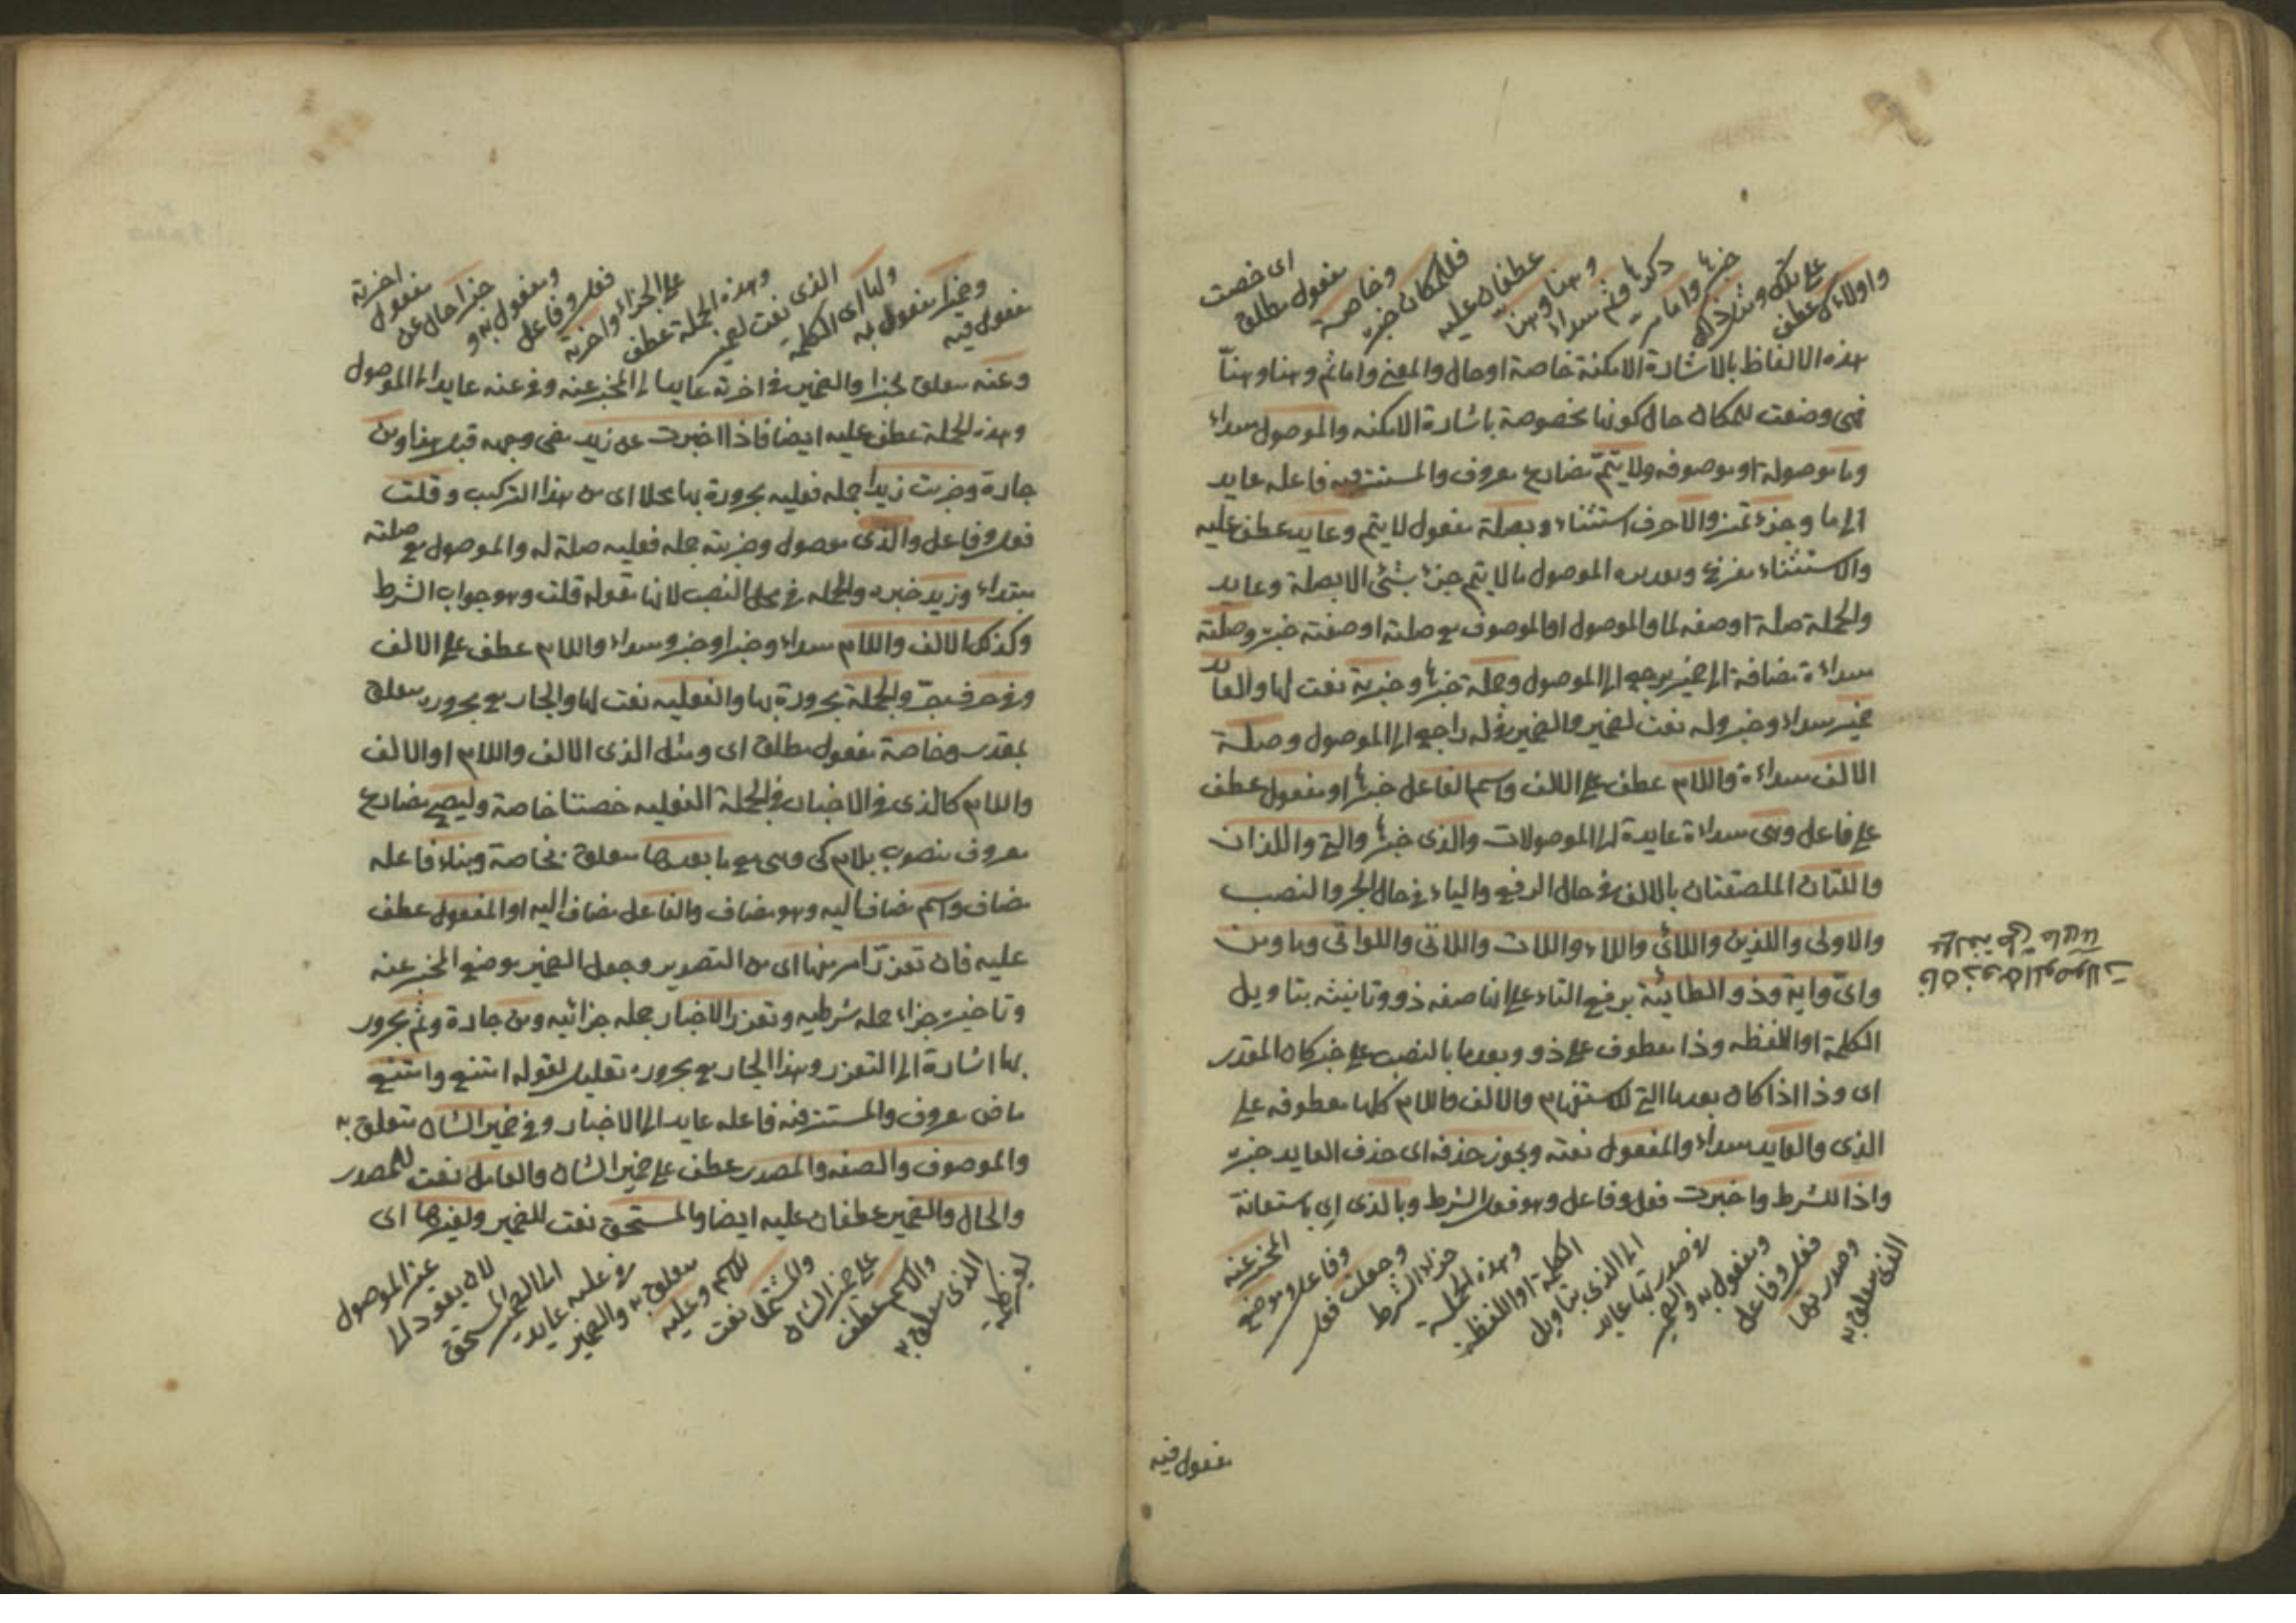 واولاء عطف
على تلك ومثل ذلك
خبرها واما
ذكرها وثم مبتداء
وهنا وهنا
عطفان عليه
فللمكان خبره
وخاصة
مفعول مطلق
اى خصت
هذه الالفاظ بالاشارة الامكنة خاصة او حال والمعنى واما ثم وهنا وهنا
فهى وضعت للمكان حال كونها مخصوصة باشارة الامكنه والموصول مبتداء
وما موصولة او موصوفه ولا يتم مضارع معروف والمستتر فيه فاعله عايد
الى ما وجزء تميز والا حرف استثناء وبصلة مفعول لا يتم وعايد عطف عليه
والاستثناء مفرغ وتقديره الموصول ما لا يتم جزء بشئ الا بصلة وعايد
والجملة صلة او صفه لما والموصول او الموصوف مع صلته او صفته خبره وصلته
مبتداءة مضافة الى ضمير يرجع الى الموصول وجملة خبرها وخبرية نعت لها والعايد
ضمير مبتداء وخبر وله نعت لضمير والضمير فى له راجع الى الموصول وصلة
الالف مبتداءة واللام عطف على الالف واسم الفاعل خبرها او مفعول عطف
على فاعل وهى مبتداءة عايدة الى الموصولات والذى خبرها والتى واللذان
واللتان الملصقتان بالالف فى حال الرفع والياء فى حال الجر والنصب
والاولى واللذين واللائى واللاء واللات واللاتى واللواتى وما ومن
واى واية وذو الطائية برفع التاء على انها صفه ذو وتانيثه بتاويل
الكلمة او اللفظه وذا معطوف على ذو وبعد ما بالنصب على خبر كان المقدر
اى وذا اذا كان بعد ما التى للاستفهام والالف واللام كلها معطوفه على
الذى والعايد مبتداء والمفعول نعته ويجوز حذفه اى حذف العايد خبره
واذا للشرط واخبرت فعل وفاعل وهو فعل الشرط وبالذى اى باستعانة
الذى متعلق به
وصدرتها
فعل وفاعل
ومفعول به و
الضمير
فى صدرتها عايد
الى الذى بتاويل
الكلمة او اللفظة
وهذه الجملة
جزاء الشرط
وجعلت فعل
وفاعل وموضع
المخبر عنه
مفعول فيه
مفعول فيه
وضميرا مفعول به
ولها اى الكلمة
الذى نعت لضمير
وهذه الجملة عطف
على الجزاء واخرته
فعل وفاعل
ومفعول به و
خبرا حال عن
مفعول
اخرته
وعنه متعلق بخبرا والضمير فى اخرته عايد الى المخبر عنه وفى عنه عايد الى الموصول
وهذه الجملة عطف عليه ايضا فاذا اخبرت عن زيد مضى وجهه قبل هذا ومن
جارة وضربت زيدا جمله فعليه مجرورة بها محلا اى من هذا التركيب وقلت
فعل وفاعل والذى موصول وضربته جمله فعليه صلة له والموصول مع صلته
مبتداء وزيد خبره والجمله فى محل النصب لانها مقوله قلت وهو جواب الشرط
وكذلك الالف واللام مبتداء وخبر او خبر ومبتداء واللام عطف على الالف
وفى حرف جر والجملة مجرورة بها والفعليه نعت لها والجار مع مجروره متعلق
بمقدر وخاصة مفعول مطلق اى ومثل الذى الالف واللام او الالف
واللام كالذى فى الاخبار فى الجملة الفعليه خصتا خاصة وليصح مضارع
معروف منصوب بلام كى وهى مع ما بعدها متعلق بخاصة وبناء فاعله
مضاف واسم مضاف اليه وهو مضاف والفاعل مضاف اليه او المفعول عطف
عليه فان تعذر امر منها اى من التصدير وجعل الضمير موضع المخبر عنه
وتاخيره جزاء جمله شرطيه وتعذر الاخبار جمله جزائيه ومن جارة وثم مجرور
بها اشارة الى التعذر وهذا الجار مع مجروره تعليل لقوله امتنع وامتنع
ماض معروف والمستتر فيه فاعله عايد الى الاخبار وفى ضمير الشان متعلق به
والموصوف والصفه والمصدر عطف على ضمير الشان والعامل نعت للمصدر
والحال والتميز عطفان عليه ايضا والمستحق نعت للضمير ولغيرها اى
لغير كلمة
الذى متعلق به
والاسم عطف
على ضمير الشان
والمشتمل نعت
للاسم وعليه
متعلق به والضمير
فى عليه عايد
الى الضمير المستحق
لان يعود الى
غير الموصول